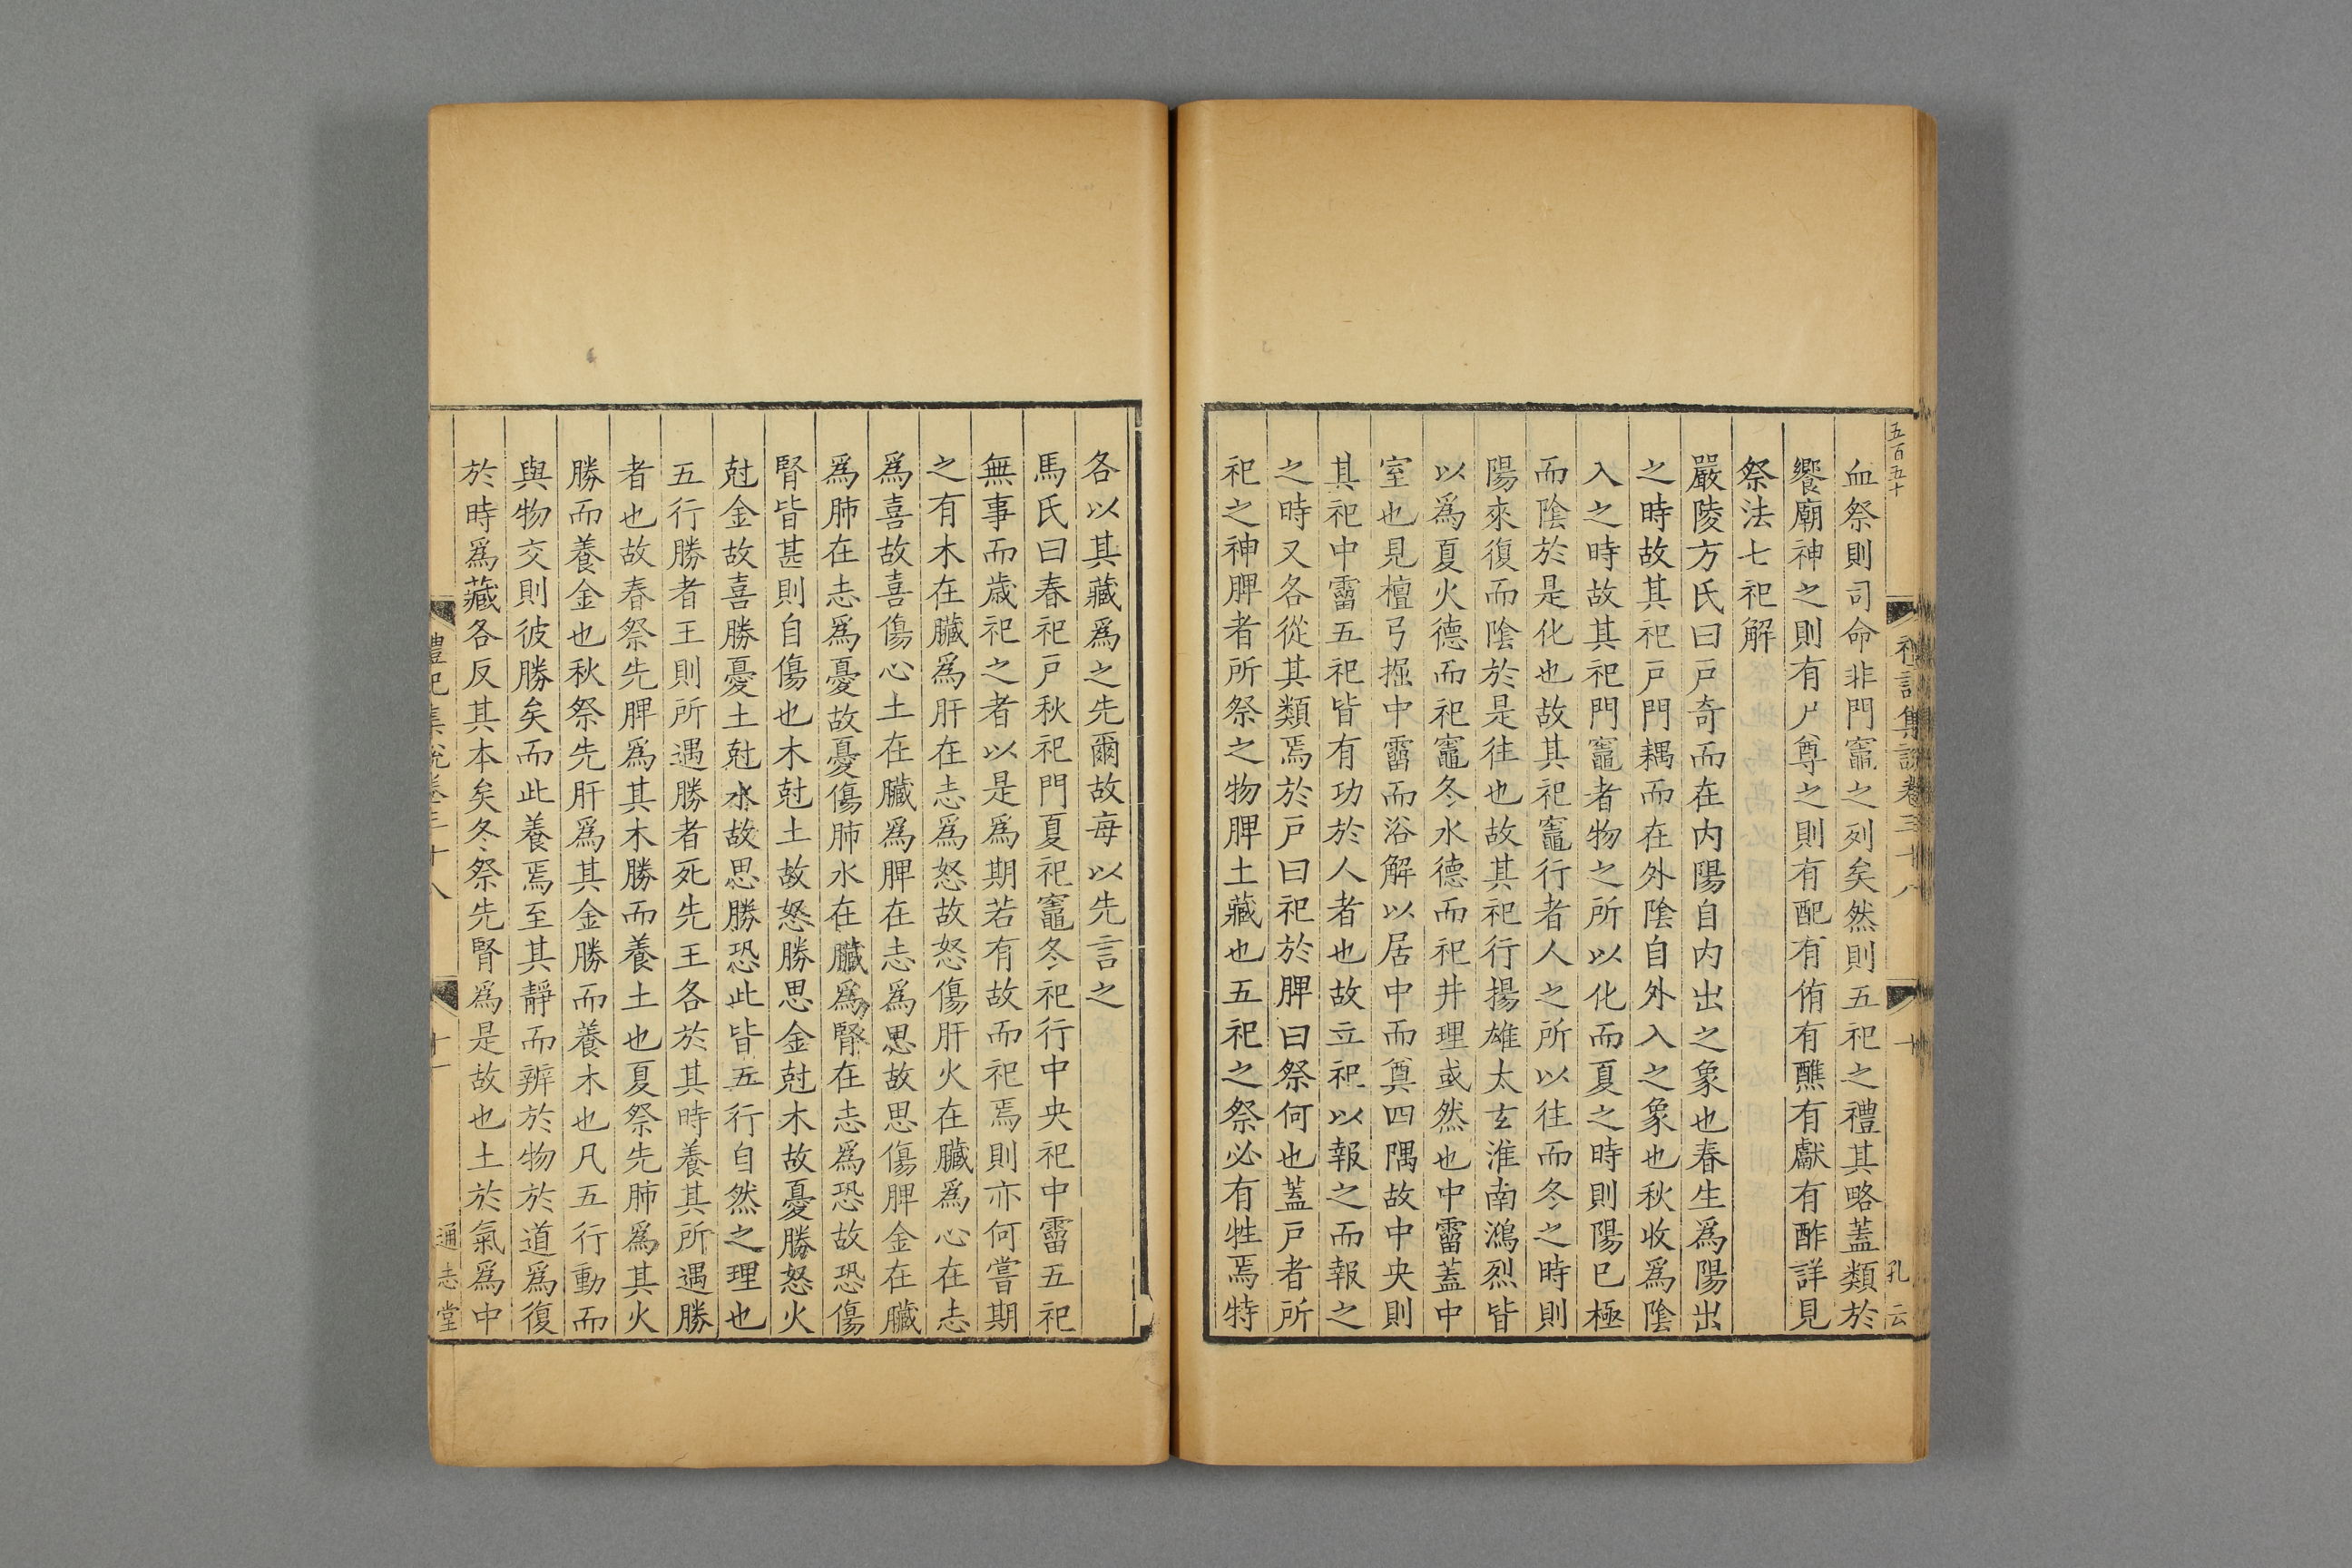 五百五十
禮記集說卷三十八
十
孔云
血祭則司命非門竈之列矣然則五祀之禮其略蓋類於
饗廟神之則有尸尊之則有配有侑有醮有獻有酢詳見
祭法七祀解
嚴陵方氏曰戸奇而在内陽自内出之象也春生爲陽出
之時故其祀戸門耦而在外陰自外入之象也秋收爲陰
入之時故其祀門竈者物之所以化而夏之時則陽巳極
而陰於是化也故其祀竈行者人之所以往而冬之時則
陽來復而陰於是往也故其祀行揚雄太玄淮南鴻烈皆
以爲夏火德而祀竈冬水德而祀井理或然也中霤蓋中
室也見檀弓掘中霤而浴解以居中而奠四隅故中央則
其祀中霤五祀皆有功於人者也故立祀以報之而報之
之時又各從其類焉於戸曰祀於脾曰祭何也蓋戸者所
祀之神脾者所祭之物脾土藏也五祀之祭必有牲焉特
各以其藏爲之先爾故每以先言之
馬氏曰春祀戸秋祀門夏祀竈冬祀行中央祀中霤五祀
無事而歲祀之者以是爲期若有故而祀焉則亦何嘗期
之有木在臟爲肝在志爲怒故怒傷肝火在臟爲心在志
爲喜故喜傷心土在臟爲脾在志爲思故思傷脾金在臟
爲肺在志爲憂故憂傷肺水在臟爲腎在志爲恐故恐傷
腎皆甚則自傷也木尅土故怒勝思金尅木故憂勝怒火
尅金故喜勝憂土尅水故思勝恐此皆五行自然之理也
五行勝者王則所遇勝者死先王各於其時養其所遇勝
者也故春祭先脾爲其木勝而養土也夏祭先肺爲其火
勝而養金也秋祭先肝爲其金勝而養木也凡五行動而
與物交則彼勝矣而此養焉至其靜而辨於物於道爲復
於時爲藏各反其本矣冬祭先腎爲是故也土於氣爲中
禮記集說卷三十八
十一
通志堂